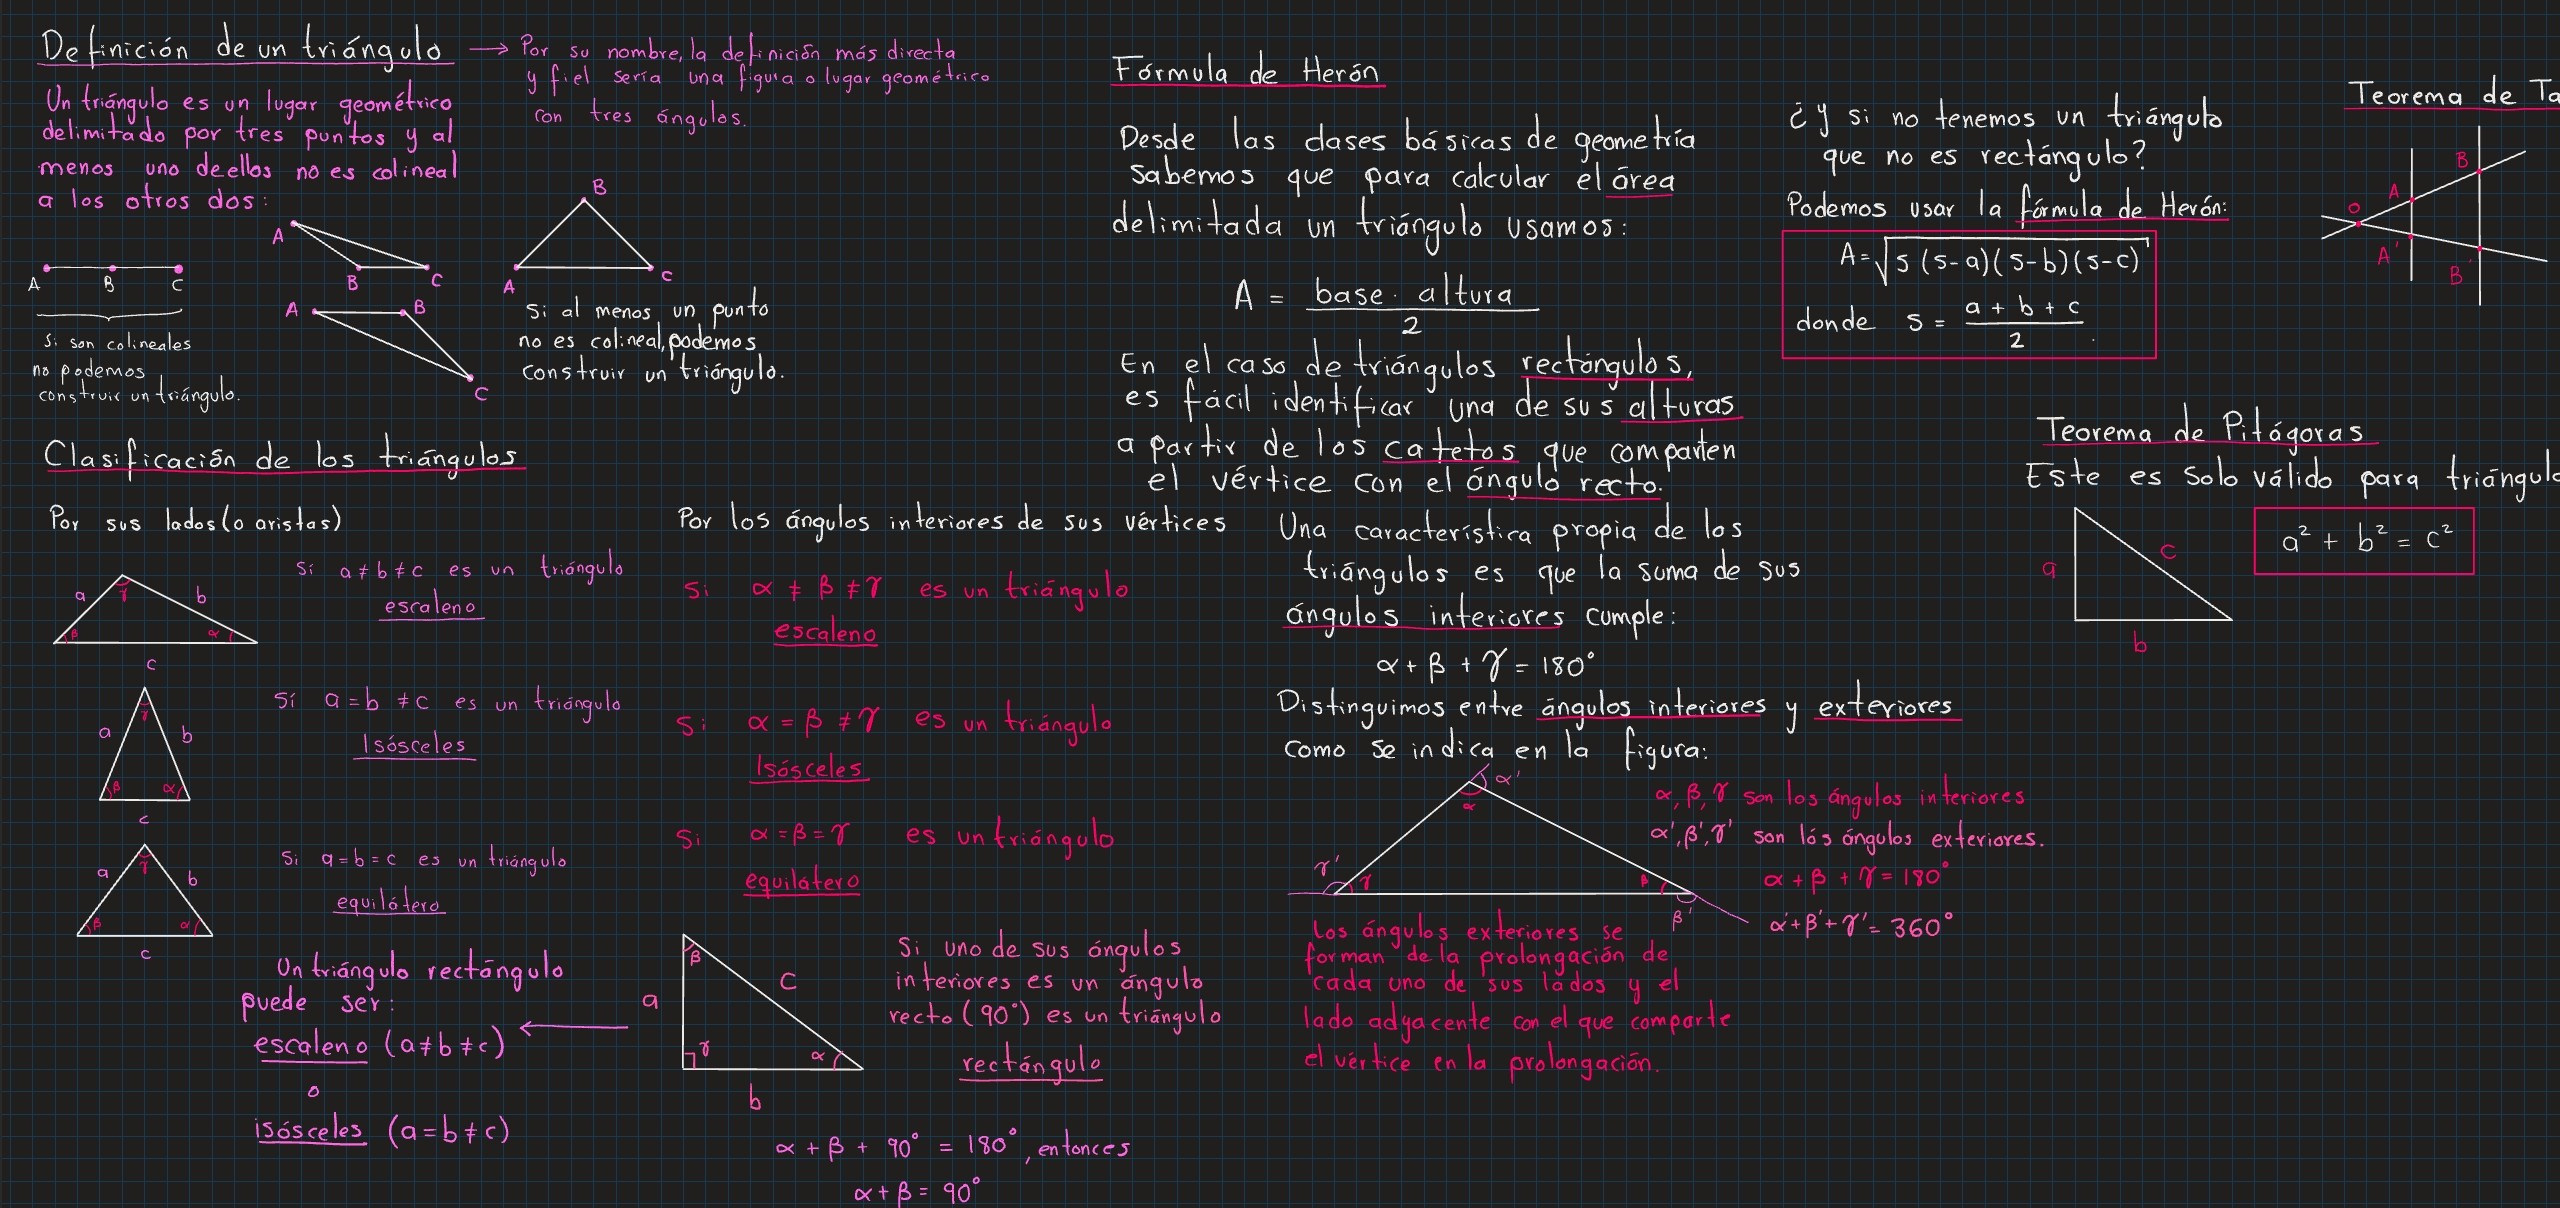 Definición de un triángulo → Por su nombre, la definición más directa
y fiel sería una figura o lugar geométrico
con tres ángulos.
Un triángulo es un lugar geométrico
delimitado por tres puntos y al
menos uno de ellos no es colineal
a los otros dos:
A B C
Si son colineales
no podemos
construir un triángulo.
A B C
A B C
B
A C
Si al menos un punto
no es colineal, podemos
construir un triángulo.
Clasificación de los triángulos
Por sus lados (o aristas)
a γ b
β α
c
Si a ≠ b ≠ c es un triángulo
escaleno
a γ b
β α
c
Sí a = b ≠ c es un triángulo
Isósceles
a γ b
β α
c
Si a = b = c es un triángulo
equilátero
Un triángulo rectángulo
puede ser:
escaleno (a ≠ b ≠ c) ←
o
isósceles (a = b ≠ c)
Por los ángulos interiores de sus vértices
Si α ≠ β ≠ γ es un triángulo
escaleno
Si α = β ≠ γ es un triángulo
Isósceles
Si α = β = γ es un triángulo
equilátero
β
a c
γ α
b
Si uno de sus ángulos
interiores es un ángulo
recto (90°) es un triángulo
rectángulo
α + β + 90° = 180°, entonces
α + β = 90°
Fórmula de Herón
Desde las clases básicas de geometría
sabemos que para calcular el área
delimitada un triángulo usamos:
A = base · altura / 2
En el caso de triángulos rectángulos,
es fácil identificar una de sus alturas
a partir de los catetos que comparten
el vértice con el ángulo recto.
Una característica propia de los
triángulos es que la suma de sus
ángulos interiores cumple:
α + β + γ = 180°
Distinguimos entre ángulos interiores y exteriores
como se indica en la figura:
α'
α
γ' γ β
β'
α, β, γ son los ángulos interiores
α', β', γ' son lós ángulos exteriores.
α + β + γ = 180°
α' + β' + γ' = 360°
Los ángulos exteriores se
forman de la prolongación de
cada uno de sus lados y el
lado adyacente con el que comparte
el vértice en la prolongación.
¿Y si no tenemos un triángulo
que no es rectángulo?
Podemos usar la fórmula de Herón:
A = √s (s-a)(s-b)(s-c)
donde s = a + b + c / 2
Teorema de Ta
B
A
O
A'
B'
Teorema de Pitágoras
Este es solo válido para triángulo
a c
b
a² + b² = c²